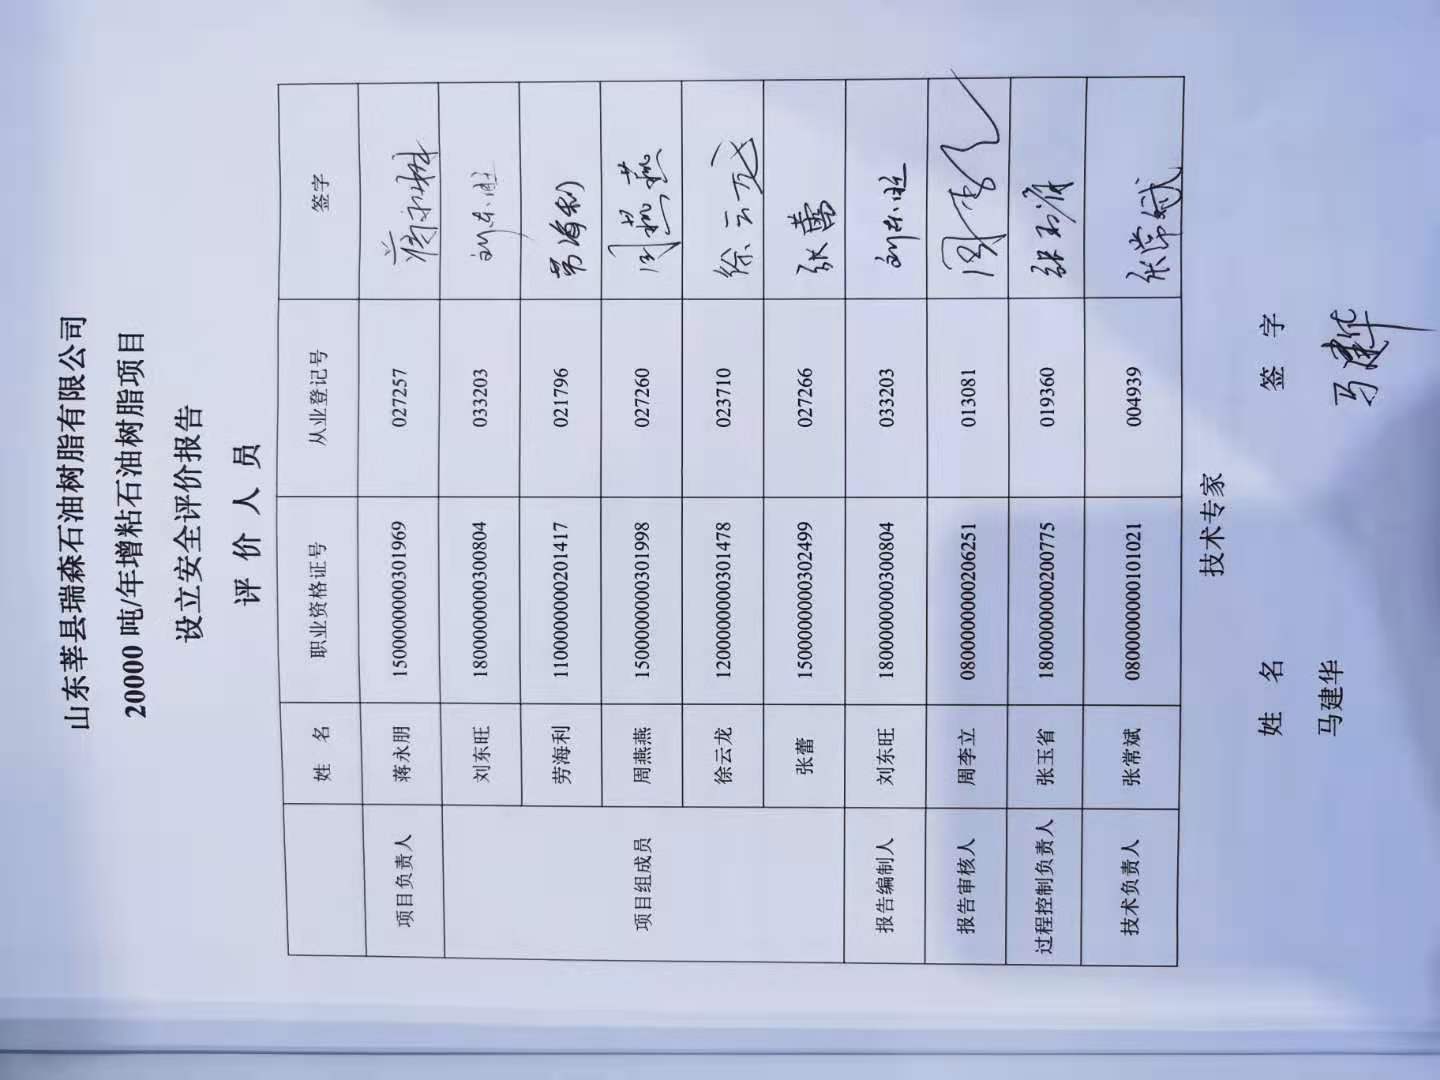 山东莘县瑞森石油树脂有限公司
20000 吨/年增粘石油树脂项目
设立安全评价报告
评 价 人 员
姓 名 职业资格证号 从业登记号 签字
项目负责人 蒋永朋 1500000000301969 027257
项目组成员 刘东旺 1800000000300804 033203 刘东旺
劳海利 1100000000201417 021796 劳海利
周燕燕 1500000000301998 027260 周燕燕
徐云龙 1200000000301478 023710 徐云龙
张蕾 1500000000302499 027266 张蕾
报告编制人 刘东旺 1800000000300804 033203 刘东旺
报告审核人 周李立 0800000000206251 013081 周李立
过程控制负责人 张玉省 1800000000200775 019360 张玉省
技术负责人 张常斌 0800000000101021 004939 张常斌
技术专家
姓 名 签 字
马建华 马建华